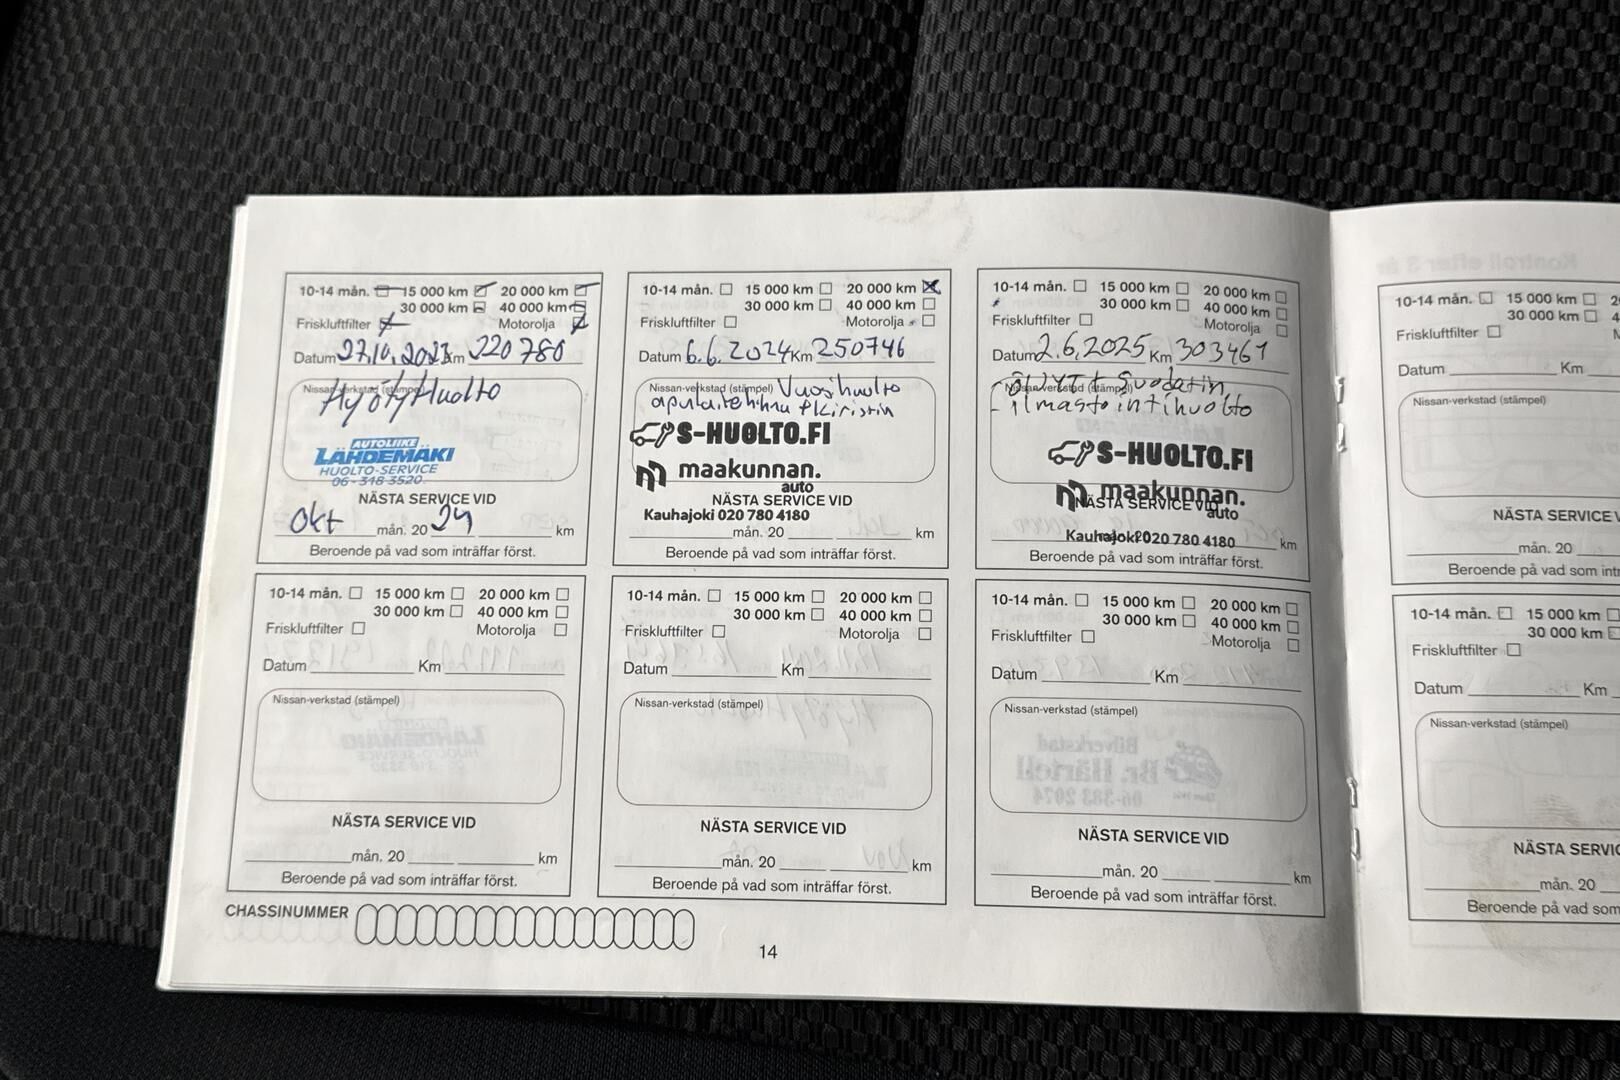 10-14 mån. 15 000 km 20 000 km
30 000 km 40 000 km
Friskluftfilter Motorolja
Datum 27.10.2023 Km 220 780
Nissan-verkstad (stämpel)
HyötyHuolto
AUTOLIIKE
LÄHDEMÄKI
HUOLTO-SERVICE
06-318 3520
NÄSTA SERVICE VID
Okt mån. 20 24 km
Beroende på vad som inträffar först.
10-14 mån. 15 000 km 20 000 km
30 000 km 40 000 km
Friskluftfilter Motorolja
Datum 6.6.2024 Km 250746
Nissan-verkstad (stämpel) Vuosihuolto
apulaitehihna + kiristin
S-HUOLTO.FI
maakunnan.
auto
NÄSTA SERVICE VID
Kauhajoki 020 780 4180
mån. 20 km
Beroende på vad som inträffar först.
10-14 mån. 15 000 km 20 000 km
30 000 km 40 000 km
Friskluftfilter Motorolja
Datum 2.6.2025 Km 303461
Nissan-verkstad (stämpel)
- öljyt + suodatin
- ilmastointihuolto
S-HUOLTO.FI
maakunnan.
auto
NÄSTA SERVICE VID
Kauhajoki 020 780 4180
km
Beroende på vad som inträffar först.
10-14 mån. 15 000 km
30 000 km
Friskluftfilter
Datum Km
Nissan-verkstad (stämpel)
NÄSTA SERVICE
mån. 20
Beroende på vad som
10-14 mån. 15 000 km 20 000 km
30 000 km 40 000 km
Friskluftfilter Motorolja
Datum Km
Nissan-verkstad (stämpel)
NÄSTA SERVICE VID
mån. 20 km
Beroende på vad som inträffar först.
10-14 mån. 15 000 km 20 000 km
30 000 km 40 000 km
Friskluftfilter Motorolja
Datum Km
Nissan-verkstad (stämpel)
NÄSTA SERVICE VID
mån. 20 km
Beroende på vad som inträffar först.
10-14 mån. 15 000 km 20 000 km
30 000 km 40 000 km
Friskluftfilter Motorolja
Datum Km
Nissan-verkstad (stämpel)
NÄSTA SERVICE VID
mån. 20 km
Beroende på vad som inträffar först.
10-14 mån. 15 000 km
30 000 km
Friskluftfilter
Datum Km
Nissan-verkstad (stämpel)
NÄSTA
mån. 20
Beroende på vad som
CHASSINUMMER
14